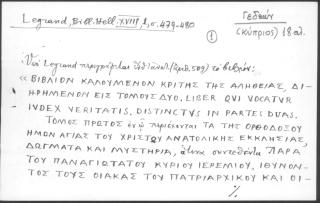 Legrand, Bibl. Hell. XVIII, 1, σ. 479-480
Γεδεών
(Κύπριος) 18 αι.
1
Ὑπὸ Legrand περιγράφεται (ἀριθ. 509) τὸ βιβλίον:
« ΒΙΒΛΙΟΝ ΚΑΛΟΥΜΕΝΟΝ ΚΡΙΤΗΣ ΤΗΣ ΑΛΗΘΕΙΑΣ, ΔΙ-
ΗΡΗΜΕΝΟΝ ΕΙΣ ΤΟΜΟΥΣ ΔΥΟ, LIBER QUI VOCATUR
IVDEX VERITATIS, DISTINCTVS IN PARTES DUAS.
ΤΟΜΟΣ ΠΡΩΤΟΣ ἐν ᾧ περιέχονται ΤΑ ΤΗΣ ΟΡΘΟΔΟΞΟΥ
ΗΜΩΝ ΑΓΙΑΣ ΤΟΥ ΧΡΙΣΤΟΥ ΑΝΑΤΟΛΙΚΗΣ ΕΚΚΛΗΣΙΑΣ,
ΔΟΓΜΑΤΑ ΚΑΙ ΜΥΣΤΗΡΙΑ, ἅτινα συνετέθησαν ΠΑΡΑ
ΤΟΥ ΠΑΝΑΓΙΩΤΑΤΟΥ ΚΥΡΙΟΥ ΙΕΡΕΜΙΟΥ, ΙΘΥΝΟΝ-
ΤΟΣ ΤΟΥΣ ΟΙΑΚΑΣ ΤΟΥ ΠΑΤΡΙΑΡΧΙΚΟΥ ΚΑΙ ΟΙ-
./.